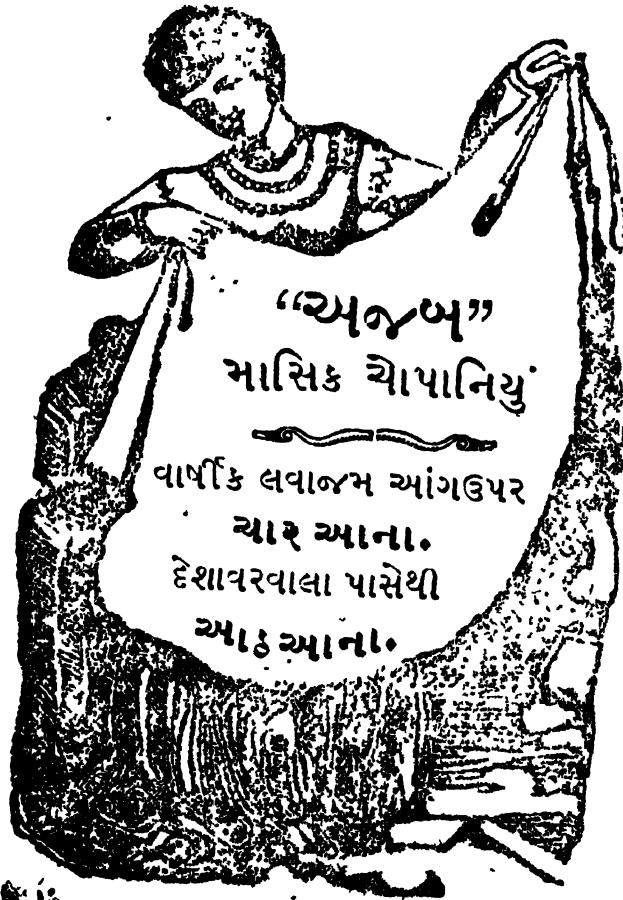 “અજબ”
માસિક ચોપાનિયું
વાર્ષીક લવાજમ આંગઉપર
ચાર આના.
દેશાવરવાલા પાસેથી
આઠ આના.